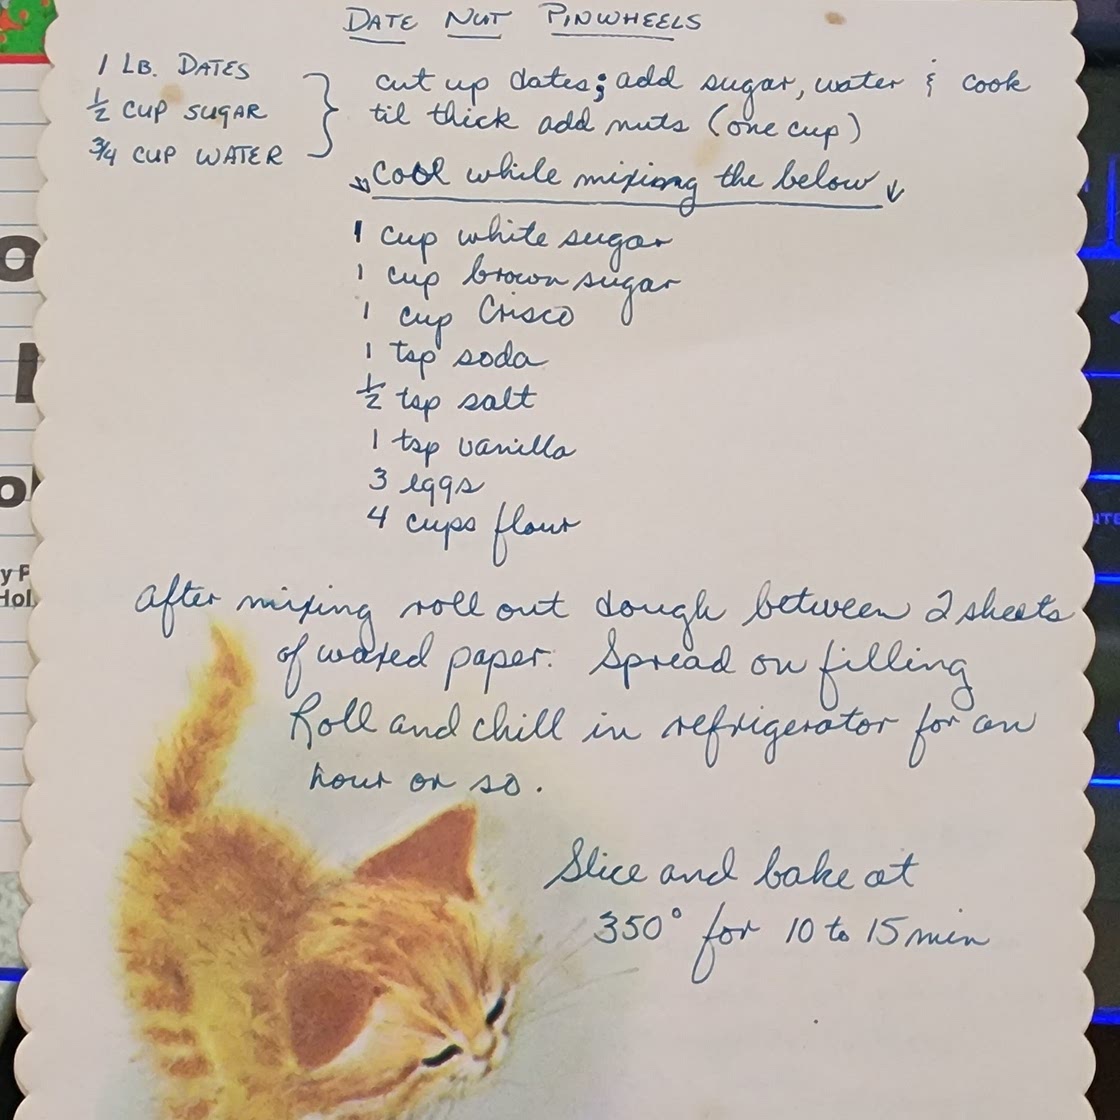 DATE NUT PINWHEELS
1 LB. DATES
1/2 CUP SUGAR
3/4 CUP WATER
cut up dates; add sugar, water & cook
til thick add nuts (one cup)
cool while mixiong the below
1 cup white sugar
1 cup brown sugar
1 cup Crisco
1 tsp soda
1/2 tsp salt
1 tsp vanilla
3 eggs
4 cups flour
after mixing roll out dough between 2 sheets
of waxed paper. Spread on filling
Roll and chill in refrigerator for an
hour or so.
Slice and bake at
350° for 10 to 15 min